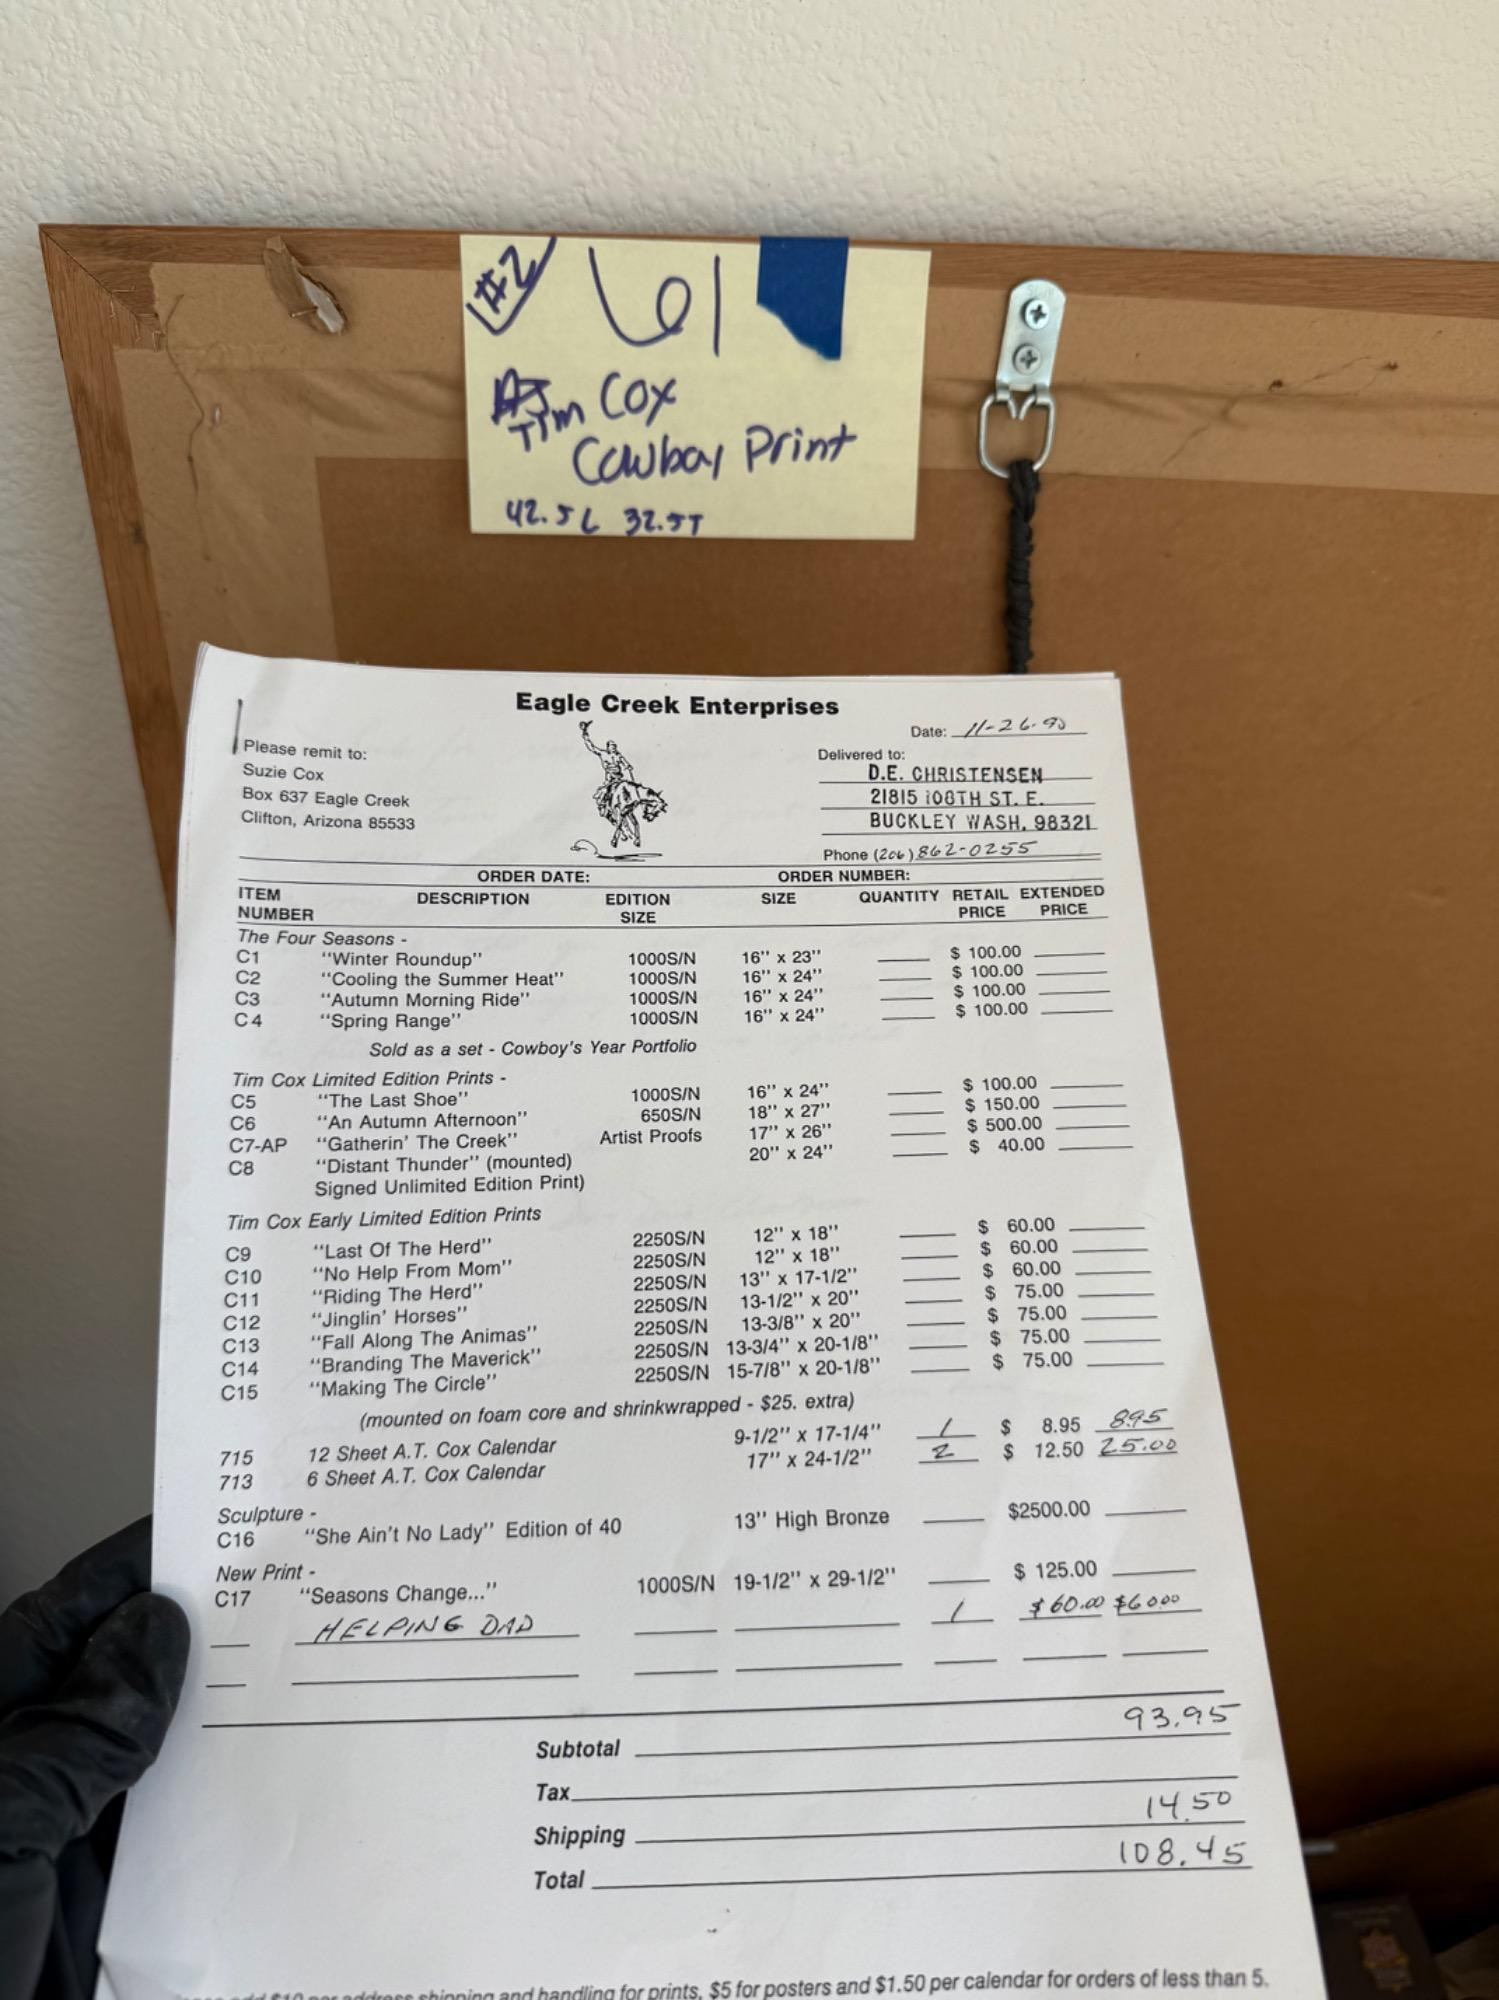 #2 61
Tim Cox
Cowboy Print
42.5L 32.5T
Eagle Creek Enterprises
Date: 11-26-90
Please remit to:
Suzie Cox
Box 637 Eagle Creek
Clifton, Arizona 85533
Delivered to:
D.E. CHRISTENSEN
21815 108TH ST. E.
BUCKLEY WASH. 98321
Phone (206) 862-0255
ORDER DATE: ORDER NUMBER:
ITEM NUMBER DESCRIPTION EDITION SIZE SIZE QUANTITY RETAIL PRICE EXTENDED PRICE
The Four Seasons -
C1 "Winter Roundup" 1000S/N 16" x 23" $ 100.00
C2 "Cooling the Summer Heat" 1000S/N 16" x 24" $ 100.00
C3 "Autumn Morning Ride" 1000S/N 16" x 24" $ 100.00
C4 "Spring Range" 1000S/N 16" x 24" $ 100.00
Sold as a set - Cowboy's Year Portfolio
Tim Cox Limited Edition Prints -
C5 "The Last Shoe" 1000S/N 16" x 24" $ 100.00
C6 "An Autumn Afternoon" 650S/N 18" x 27" $ 150.00
C7-AP "Gatherin' The Creek" Artist Proofs 17" x 26" $ 500.00
C8 "Distant Thunder" (mounted) 20" x 24" $ 40.00
Signed Unlimited Edition Print)
Tim Cox Early Limited Edition Prints
C9 "Last Of The Herd" 2250S/N 12" x 18" $ 60.00
C10 "No Help From Mom" 2250S/N 12" x 18" $ 60.00
C11 "Riding The Herd" 2250S/N 13" x 17-1/2" $ 60.00
C12 "Jinglin' Horses" 2250S/N 13-1/2" x 20" $ 75.00
C13 "Fall Along The Animas" 2250S/N 13-3/8" x 20" $ 75.00
C14 "Branding The Maverick" 2250S/N 13-3/4" x 20-1/8" $ 75.00
C15 "Making The Circle" 2250S/N 15-7/8" x 20-1/8" $ 75.00
(mounted on foam core and shrinkwrapped - $25. extra)
715 12 Sheet A.T. Cox Calendar 9-1/2" x 17-1/4" 1 $ 8.95 8.95
713 6 Sheet A.T. Cox Calendar 17" x 24-1/2" 2 $ 12.50 25.00
Sculpture -
C16 "She Ain't No Lady" Edition of 40 13" High Bronze $2500.00
New Print -
C17 "Seasons Change..." 1000S/N 19-1/2" x 29-1/2" $ 125.00
HELPING DAD 1 $60.00 $60.00
Subtotal 93.95
Tax
Shipping 14.50
Total 108.45
$10 per address shipping and handling for prints, $5 for posters and $1.50 per calendar for orders of less than 5.